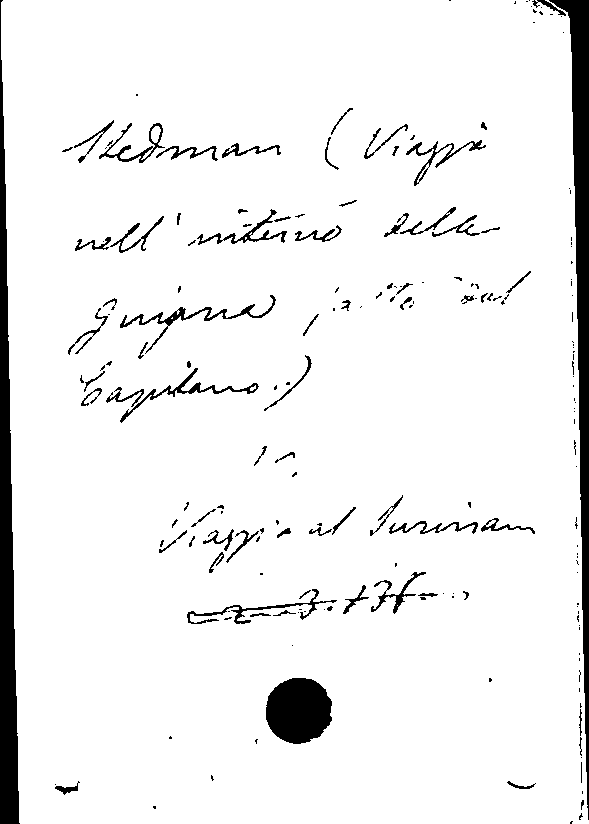 Stedman (Viaggio
nell' interno della
Gujana fatto dal
Capitano..)
in
Viaggio al Surinam